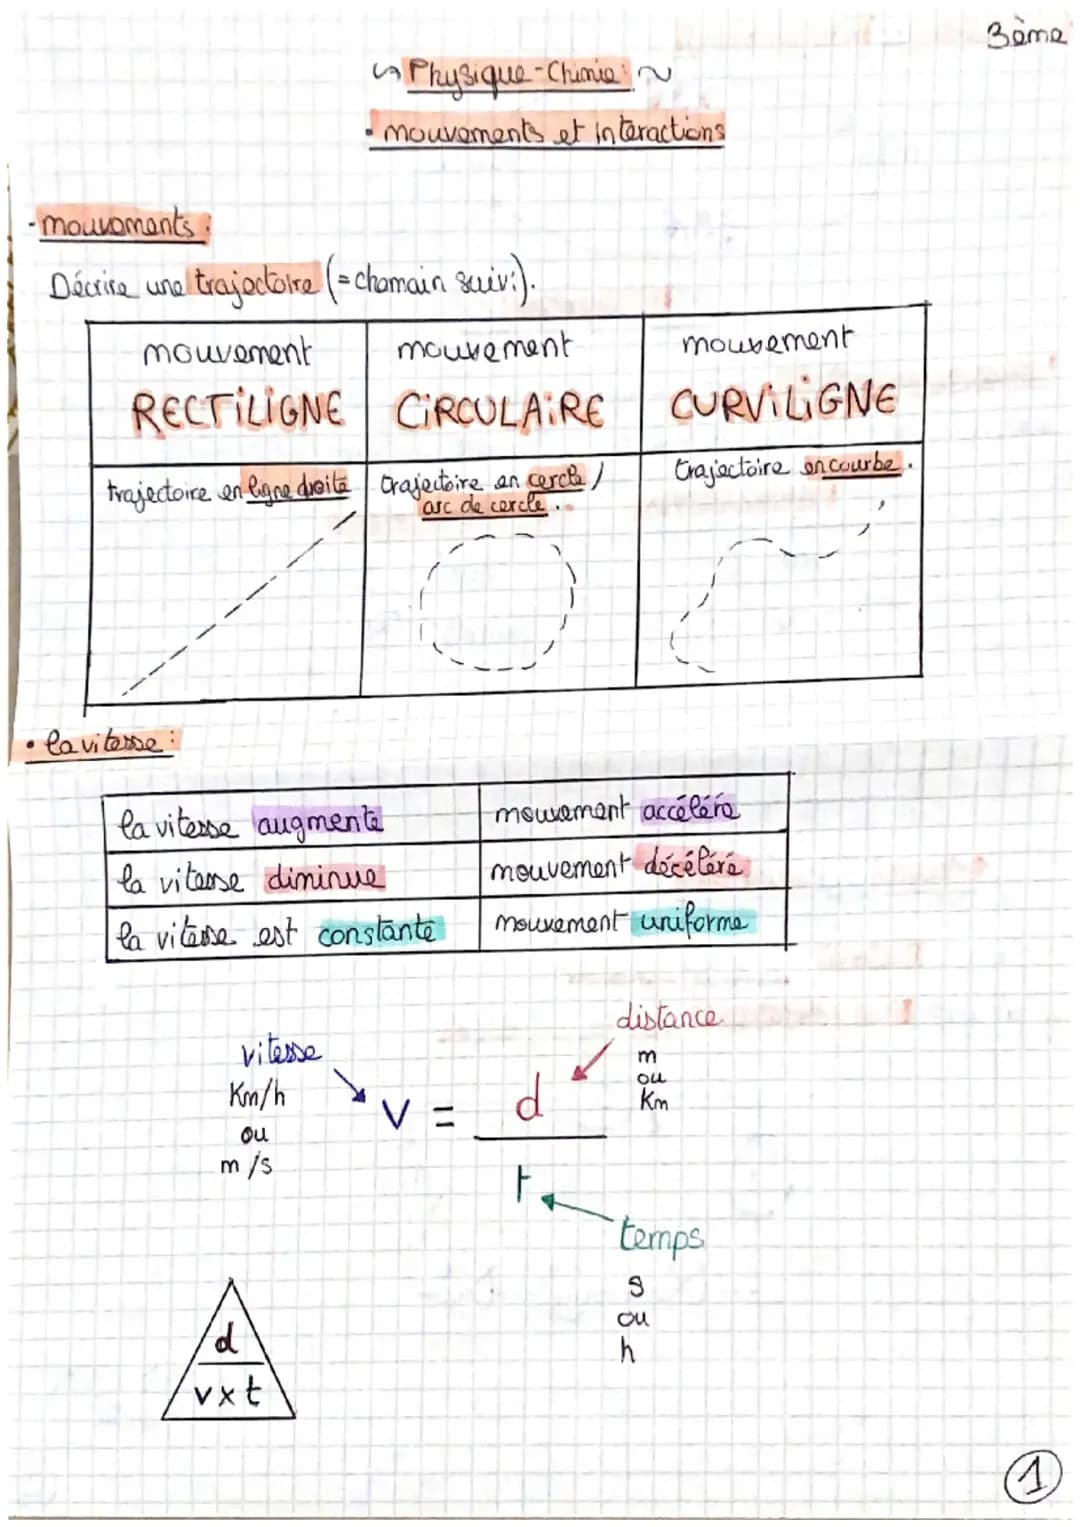 3ème
Physique-Chimie:
• mouvements et interactions
- mouvements :
Décrire une trajectoire (= chemain suivi).
mouvement RECTILIGNE
mouvement CIRCULAIRE
mouvement CURVILIGNE
trajectoire en ligne droite
trajectoire en cercle /
arc de cercle.
trajectoire en courbe.
• la vitesse :
la vitesse augmente
mouvement accéléré
la vitesse diminue
mouvement décéléré
la vitesse est constante
mouvement uniforme
distance
m
ou
Km
vitesse
Km/h
ou
m/s
v = d
t
temps
s
ou
h
d
v x t
1